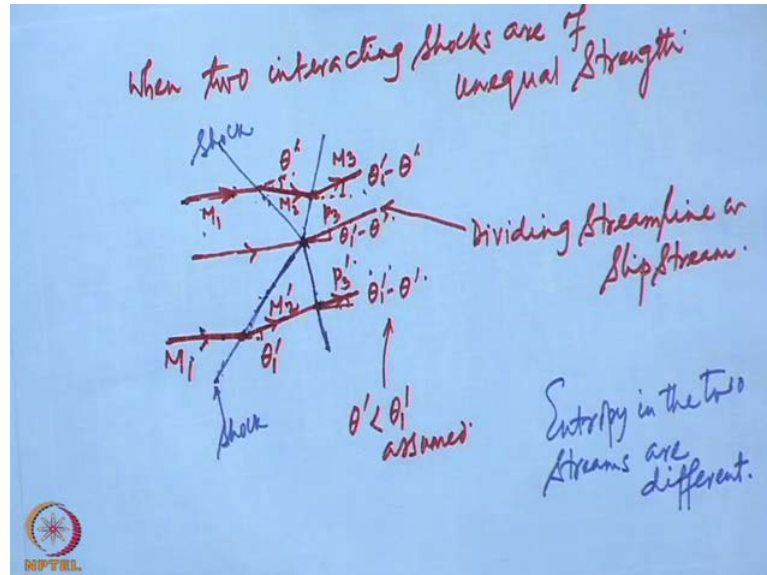 When two interacting shocks are of
unequal strength.
Shock
θ'
M3
θ₁'-θ'
M₁
M₂
P3
θ₁'-θ'
Dividing Streamline or
Slip Stream.
P₃'
M₂'
θ₁'-θ'
M₁
θ₁'
Shock
θ' < θ₁'
assumed.
Entropy in the two
streams are
different.
NPTEL